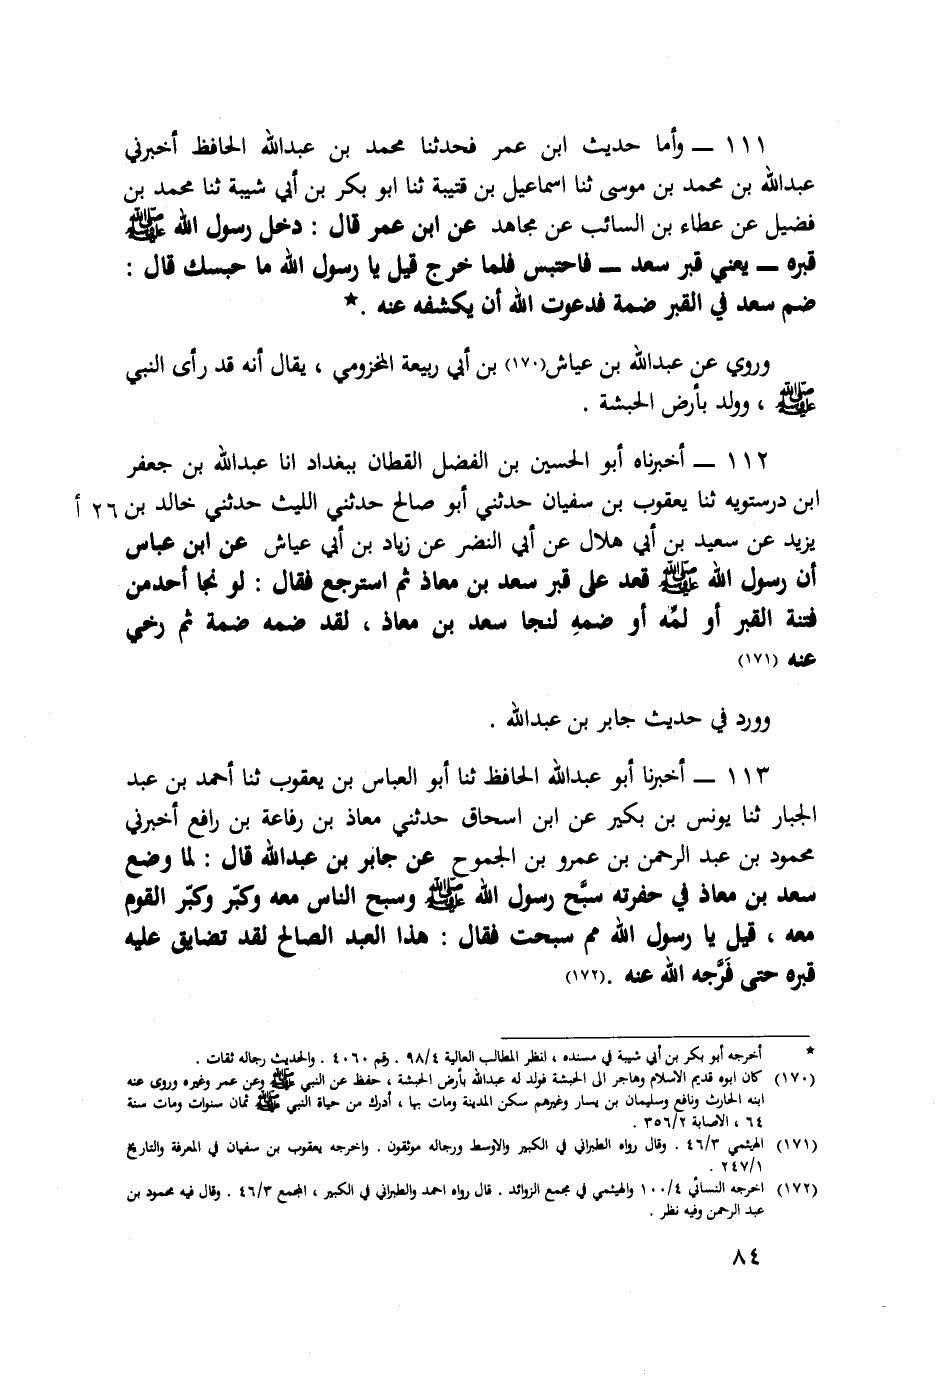 ١١١ ــ وأما حديث ابن عمر فحدثنا محمد بن عبدالله الحافظ أخبرني
عبدالله بن محمد بن موسى ثنا اسماعيل بن قتيبة ثنا ابو بكر بن أبي شيبة ثنا محمد بن
فضيل عن عطاء بن السائب عن مجاهد عن ابن عمر قال : دخل رسول الله ﷺ
قبره ــ يعني قبر سعد ــ فاحتبس فلما خرج قيل يا رسول الله ما حبسك قال :
ضم سعد في القبر ضمة فدعوت الله أن يكشفه عنه .*
وروي عن عبدالله بن عياش(١٧٠) بن أبي ربيعة المخزومي ، يقال أنه قد رأى النبي
ﷺ ، وولد بأرض الحبشة .
١١٢ ــ أخبرناه أبو الحسين بن الفضل القطان ببغداد انا عبدالله بن جعفر
ابن درستويه ثنا يعقوب بن سفيان حدثني أبو صالح حدثني الليث حدثني خالد بن ٢٦ أ
يزيد عن سعيد بن أبي هلال عن أبي النضر عن زياد بن أبي عياش عن ابن عباس
أن رسول الله ﷺ قعد على قبر سعد بن معاذ ثم استرجع فقال : لو نجا أحدمن
فتنة القبر أو لمِّه أو ضمهِ لنجا سعد بن معاذ ، لقد ضمه ضمة ثم رخي
عنه (١٧١)
وورد في حديث جابر بن عبدالله .
١١٣ ــ أخبرنا أبو عبدالله الحافظ ثنا أبو العباس بن يعقوب ثنا أحمد بن عبد
الجبار ثنا يونس بن بكير عن ابن اسحاق حدثني معاذ بن رفاعة بن رافع أخبرني
محمود بن عبد الرحمن بن عمرو بن الجموح عن جابر بن عبدالله قال : لما وضع
سعد بن معاذ في حفرته سبَّح رسول الله ﷺ وسبح الناس معه وكبّر وكبّر القوم
معه ، قيل يا رسول الله مم سبحت فقال : هذا العبد الصالح لقد تضايق عليه
قبره حتى فَرَّجه الله عنه .(١٧٢)
* أخرجه أبو بكر بن أبي شيبة في مسنده ، انظر المطالب العالية ٩٨/٤ . رقم ٤٠٦٠ . والحديث رجاله ثقات .
(١٧٠) كان ابوه قديم الاسلام وهاجر الى الحبشة فولد له عبدالله بأرض الحبشة ، حفظ عن النبي ﷺ وعن عمر وغيره وروى عنه
ابنه الحارث ونافع وسليمان بن يسار وغيرهم سكن المدينة ومات بها ، أدرك من حياة النبي ﷺ ثمان سنوات ومات سنة
٦٤ ، الاصابة ٣٥٦/٢ .
(١٧١) الهيثمي ٤٦/٣ . وقال رواه الطبراني في الكبير والاوسط ورجاله موثقون . واخرجه يعقوب بن سفيان في المعرفة والتاريخ
٢٤٧/١ .
(١٧٢) اخرجه النسائي ١٠٠/٤ والهيثمي في مجمع الزوائد . قال رواه احمد والطبراني في الكبير ، المجمع ٤٦/٣ . وقال فيه محمود بن
عبد الرحمن وفيه نظر .
٨٤